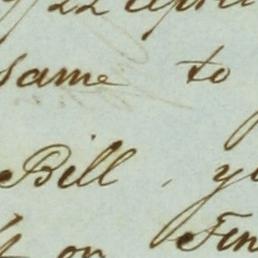 22 April
same to
Bill, y
on Fin